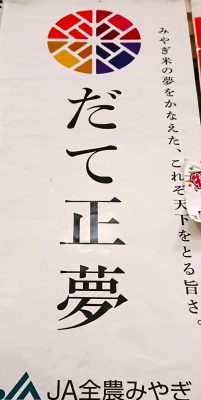 みやぎ米の夢をかなえた、これぞ天下をとる旨さ。
だて正夢
JA全農みやぎ